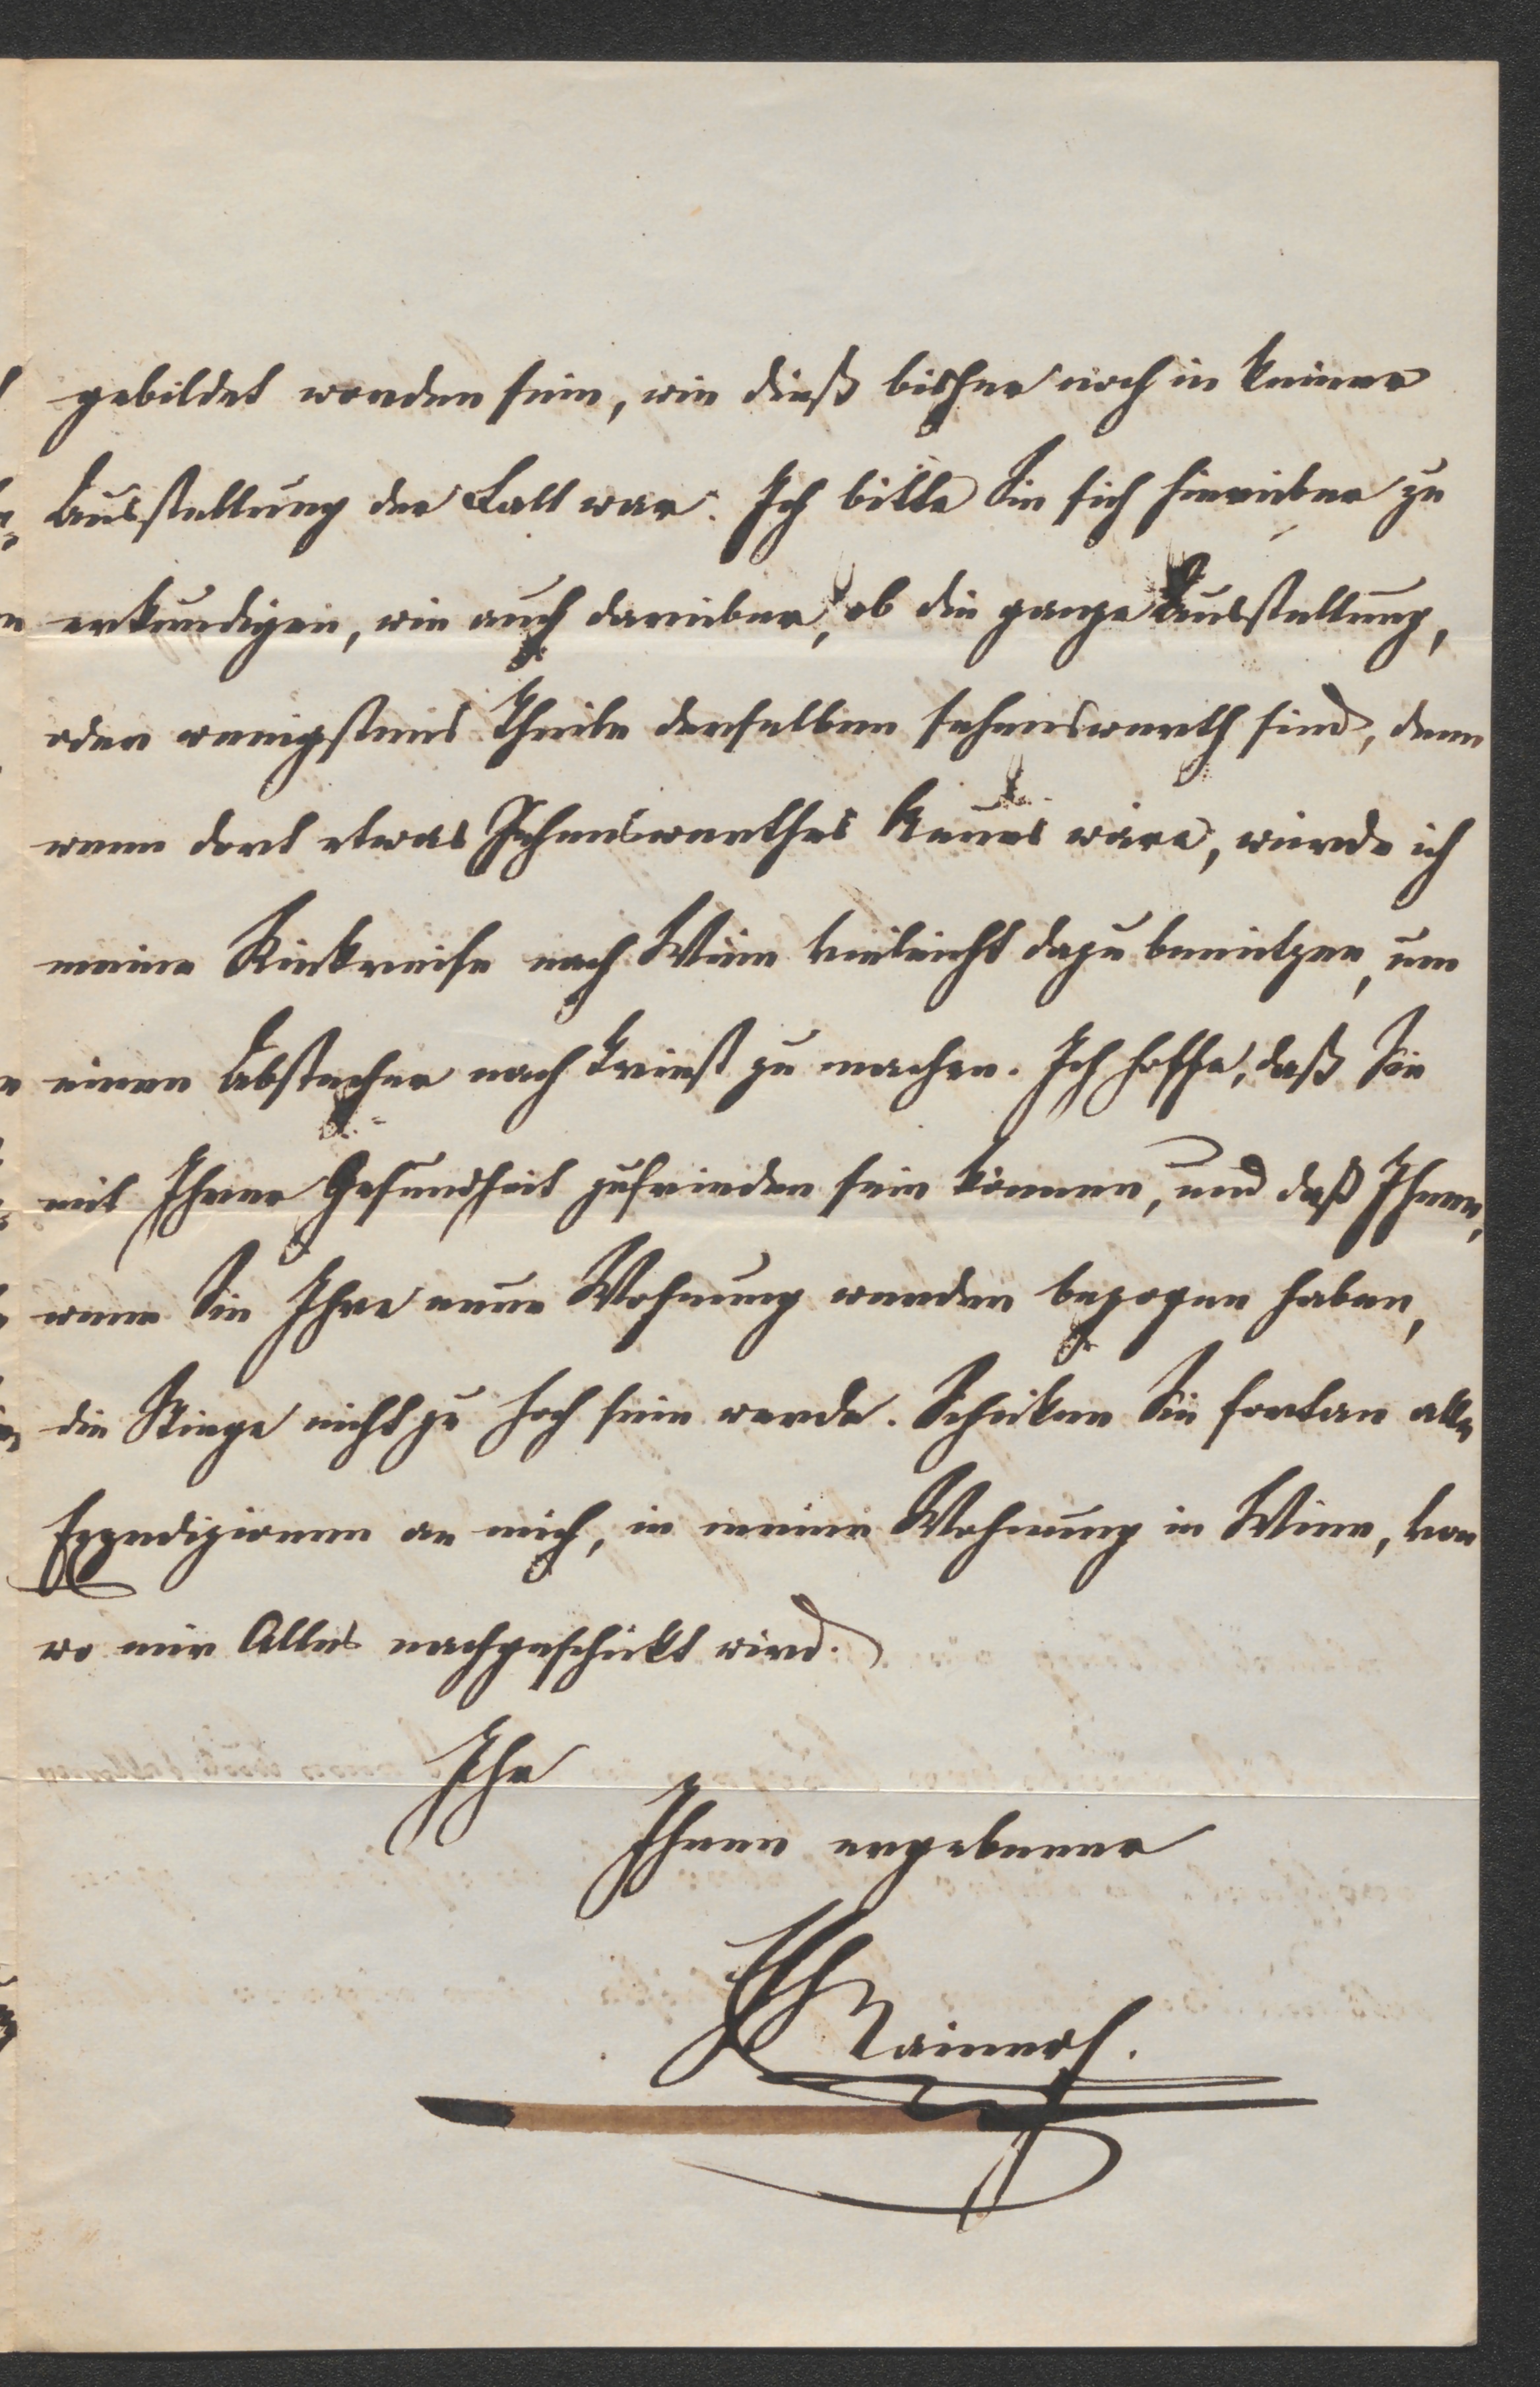 gebildet worden sein, wie dieß bisher noch in keiner
Ausstellung der Fall war. Ich bitte Sie sich hierüber zu
erkundigen, wie auch darüber, ob die ganze Ausstellung,
oder wenigstens Theile derselben sehenswerth sind, denn
wenn dort etwas Sehenswerthes Neues wäre, würde ich
meine Rückreise nach Wien vielleicht dazu benützen, um
einen Abstecher nach Triest zu machen. Ich hoffe, daß Sie
mit Ihrer Gesundheit zufrieden sein können, und daß Ihnen,
wenn Sie Ihre neue Wohnung werden bezogen haben,
die Stiege nicht zu hoch sein werde. Schicken Sie fortan alle
Expedizionen an mich, in meine Wohnung in Wien, von
wo mir Alles nachgeschickt wird.
Ihr
Ihnen ergebener
EH Rainer